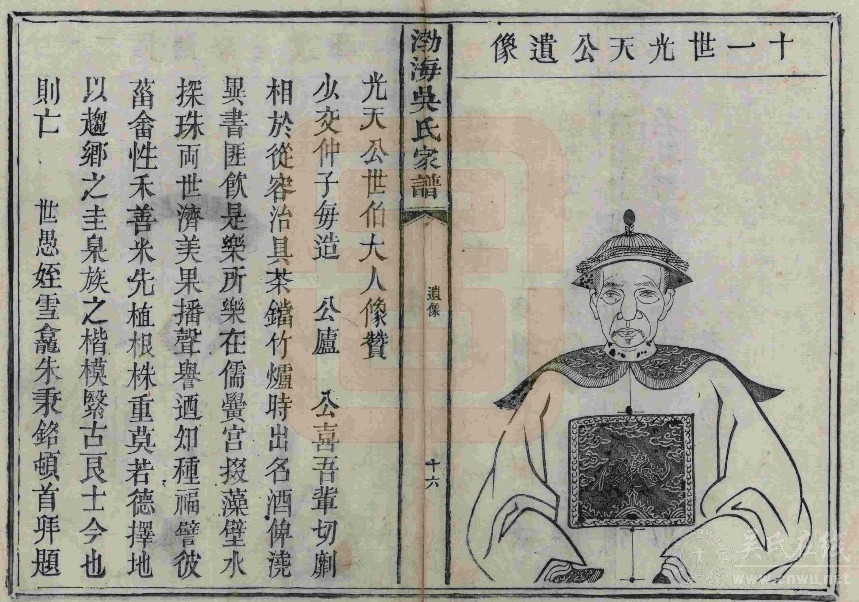 十一世光天公遺像
渤海吳氏家譜
遺像
十六
光天公世伯大人像贊
少交仲子每造　公廬　公喜吾輩切劘
相於從容治具茶鐺竹爐時出名酒俾澆
異書匪飲是樂所樂在儒黌宮掇藻璧水
探珠兩世濟美果播聲譽迺知種福譬彼
菑畬性禾善米先植根株重莫若德擇地
以趨鄉之圭臬族之楷模繄古艮士今也
則亡　　世愚姪雪龕朱秉銘頓首拜題
吳氏在线
www.cnwu.net